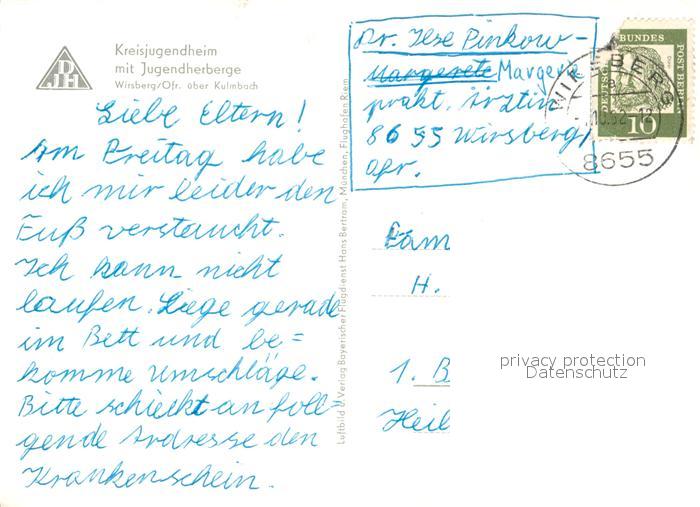 Kreisjugendheim
mit Jugendherberge
Wirsberg/Ofr. über Kulmbach
DJH
Liebe Eltern!
Am Freitag habe
ich mir leider den
Fuß verstaucht.
Ich kann nicht
laufen. Liege gerade
im Bett und be=
komme Umschläge.
Bitte schickt an foll-
gende Ardresse den
Krankenschein.
Luftbild u. Verlag Bayerischer Flugdienst Hans Bertram, München, Flughafen Riem
Dr. Pinkow-
Margerete Margere
prakt. Ärztin
8655 Wirsberg/
Ofr.
WIRSBERG
8655
DEUTSCHE BUNDESPOST BERLIN
10
Fam
H.
1. B
Heil
privacy protection
Datenschutz